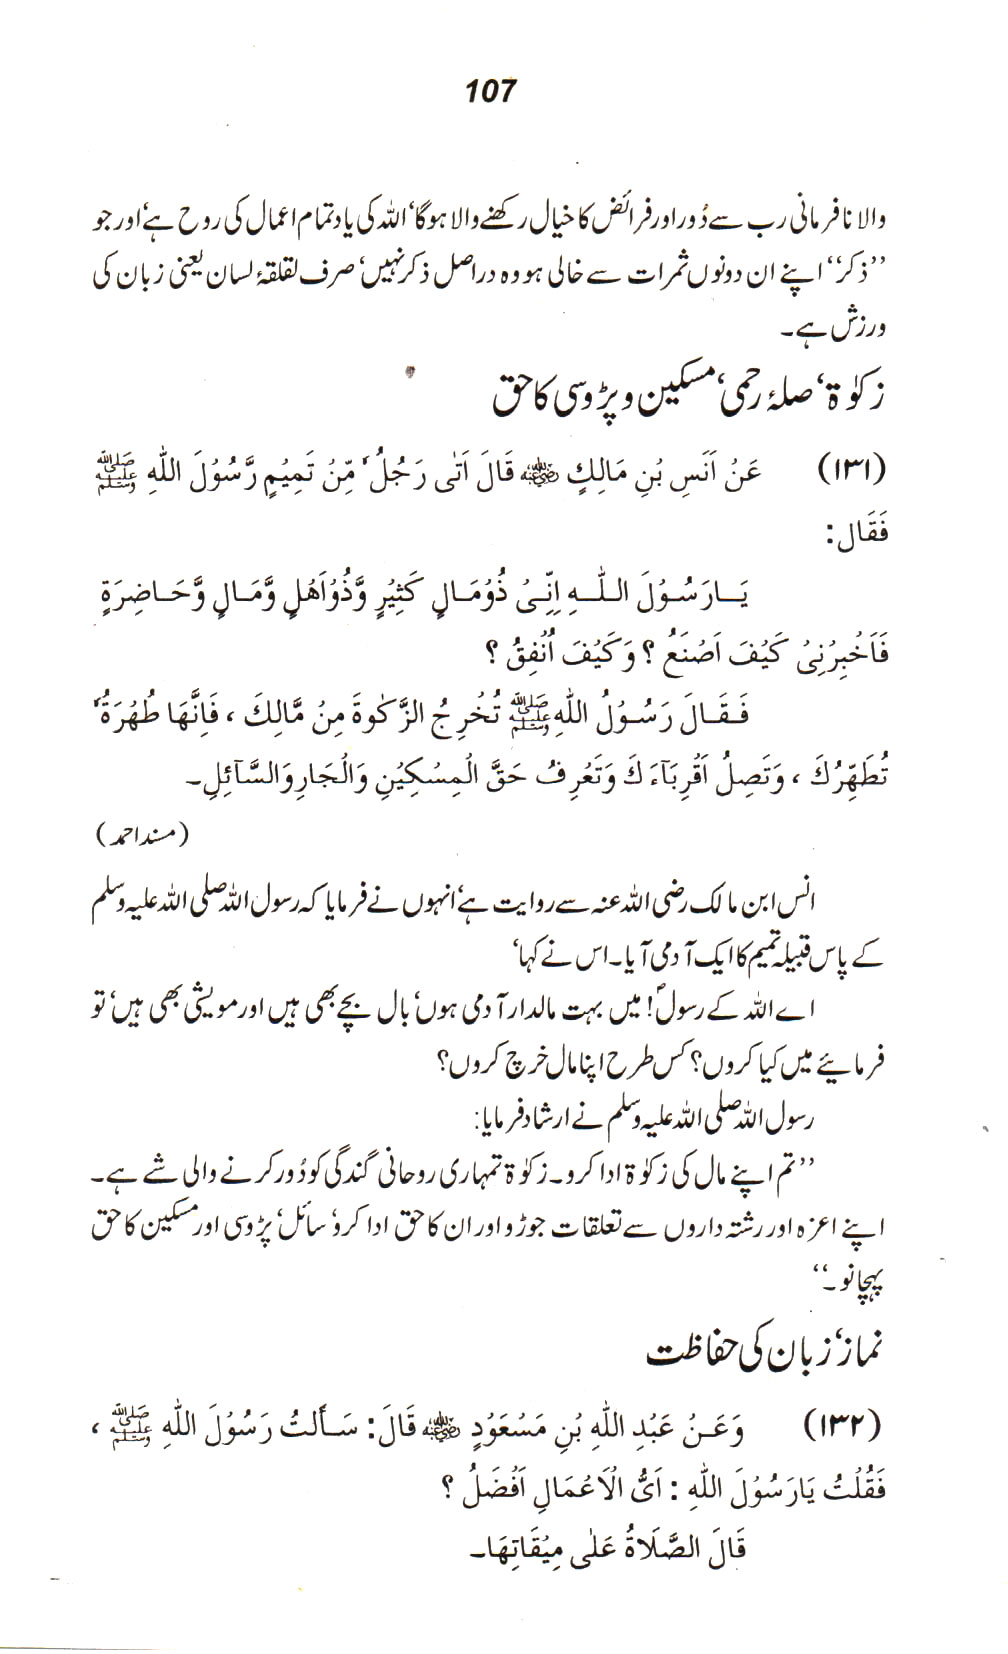 107
والا نافرمانی رب سے دُور اور فرائض کا خیال رکھنے والا ہوگا، اللہ کی یاد تمام اعمال کی روح ہے، اور جو
”ذکر“ اپنے ان دونوں ثمرات سے خالی ہو وہ دراصل ذکر نہیں، صرف لقلقۂ لسان یعنی زبان کی
ورزش ہے۔
زکوٰۃ، صلۂ رحمی، مسکین و پڑوسی کا حق
(۱۳۱) عَنْ اَنَسِ بْنِ مَالِكٍ ؓ قَالَ اَتٰى رَجُلٌ مِّنْ تَمِيْمٍ رَّسُوْلَ اللّٰهِ ﷺ
فَقَال:
يَارَسُوْلَ اللّٰهِ اِنِّىْ ذُوْمَالٍ كَثِيْرٍ وَّذُوْاَهْلٍ وَّمَالٍ وَّحَاضِرَةٍ
فَاَخْبِرْنِىْ كَيْفَ اَصْنَعُ ؟ وَكَيْفَ اُنْفِقُ ؟
فَقَالَ رَسُوْلُ اللّٰهِ ﷺ تُخْرِجُ الزَّكٰوةَ مِنْ مَّالِكَ ، فَاِنَّهَا طُهْرَةٌ
تُطَهِّرُكَ ، وَتَصِلُ اَقْرِبَآءَكَ وَتَعْرِفُ حَقَّ الْمِسْكِيْنِ وَالْجَارِ وَالسَّآئِلِ۔
(مسند احمد)
انس ابن مالک رضی اللہ عنہ سے روایت ہے، انہوں نے فرمایا کہ رسول اللہ صلی اللہ علیہ وسلم
کے پاس قبیلہ تمیم کا ایک آدمی آیا۔ اس نے کہا،
اے اللہ کے رسولؐ! میں بہت مالدار آدمی ہوں، بال بچے بھی ہیں اور مویشی بھی ہیں، تو
فرمائیے میں کیا کروں؟ کس طرح اپنا مال خرچ کروں؟
رسول اللہ صلی اللہ علیہ وسلم نے ارشاد فرمایا:
”تم اپنے مال کی زکوٰۃ ادا کرو۔ زکوٰۃ تمہاری روحانی گندگی کو دُور کرنے والی شے ہے۔
اپنے اعزہ اور رشتہ داروں سے تعلقات جوڑو اور ان کا حق ادا کرو، سائل، پڑوسی اور مسکین کا حق
پہچانو۔“
نماز، زبان کی حفاظت
(۱۳۲) وَعَنْ عَبْدِ اللّٰهِ بْنِ مَسْعَوْدٍ ؓ قَالَ: سَأَلتُ رَسُوْلَ اللّٰهِ ﷺ ،
فَقُلْتُ يَارَسُوْلَ اللّٰهِ : اَىُّ الْاَعْمَالِ اَفْضَلُ ؟
قَالَ الصَّلَاةُ عَلٰى مِيْقَاتِهَا۔